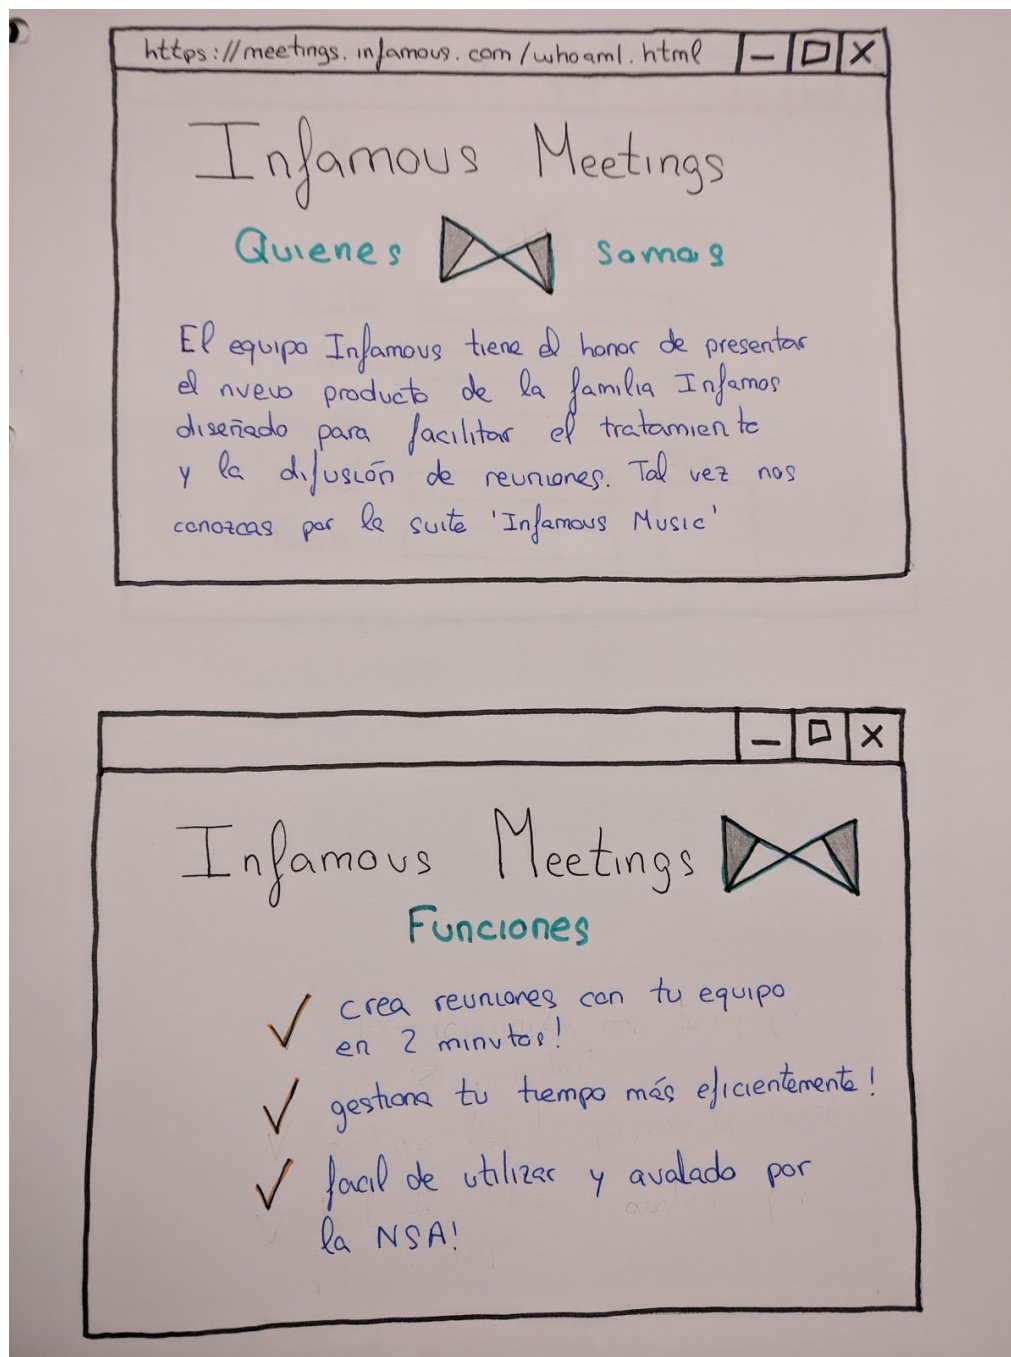 https://meetings.infamous.com/whoamI.html
Infamous Meetings
Quienes somos
El equipo Infamous tiene el honor de presentar
el nuevo producto de la familia Infamos
diseñado para facilitar el tratamiento
y la difusión de reuniones. Tal vez nos
conozcas por la suite 'Infamous Music'
Infamous Meetings
Funciones
✓ crea reuniones con tu equipo
en 2 minutos!
✓ gestiona tu tiempo más eficientemente!
✓ facil de utilizar y avalado por
la NSA!